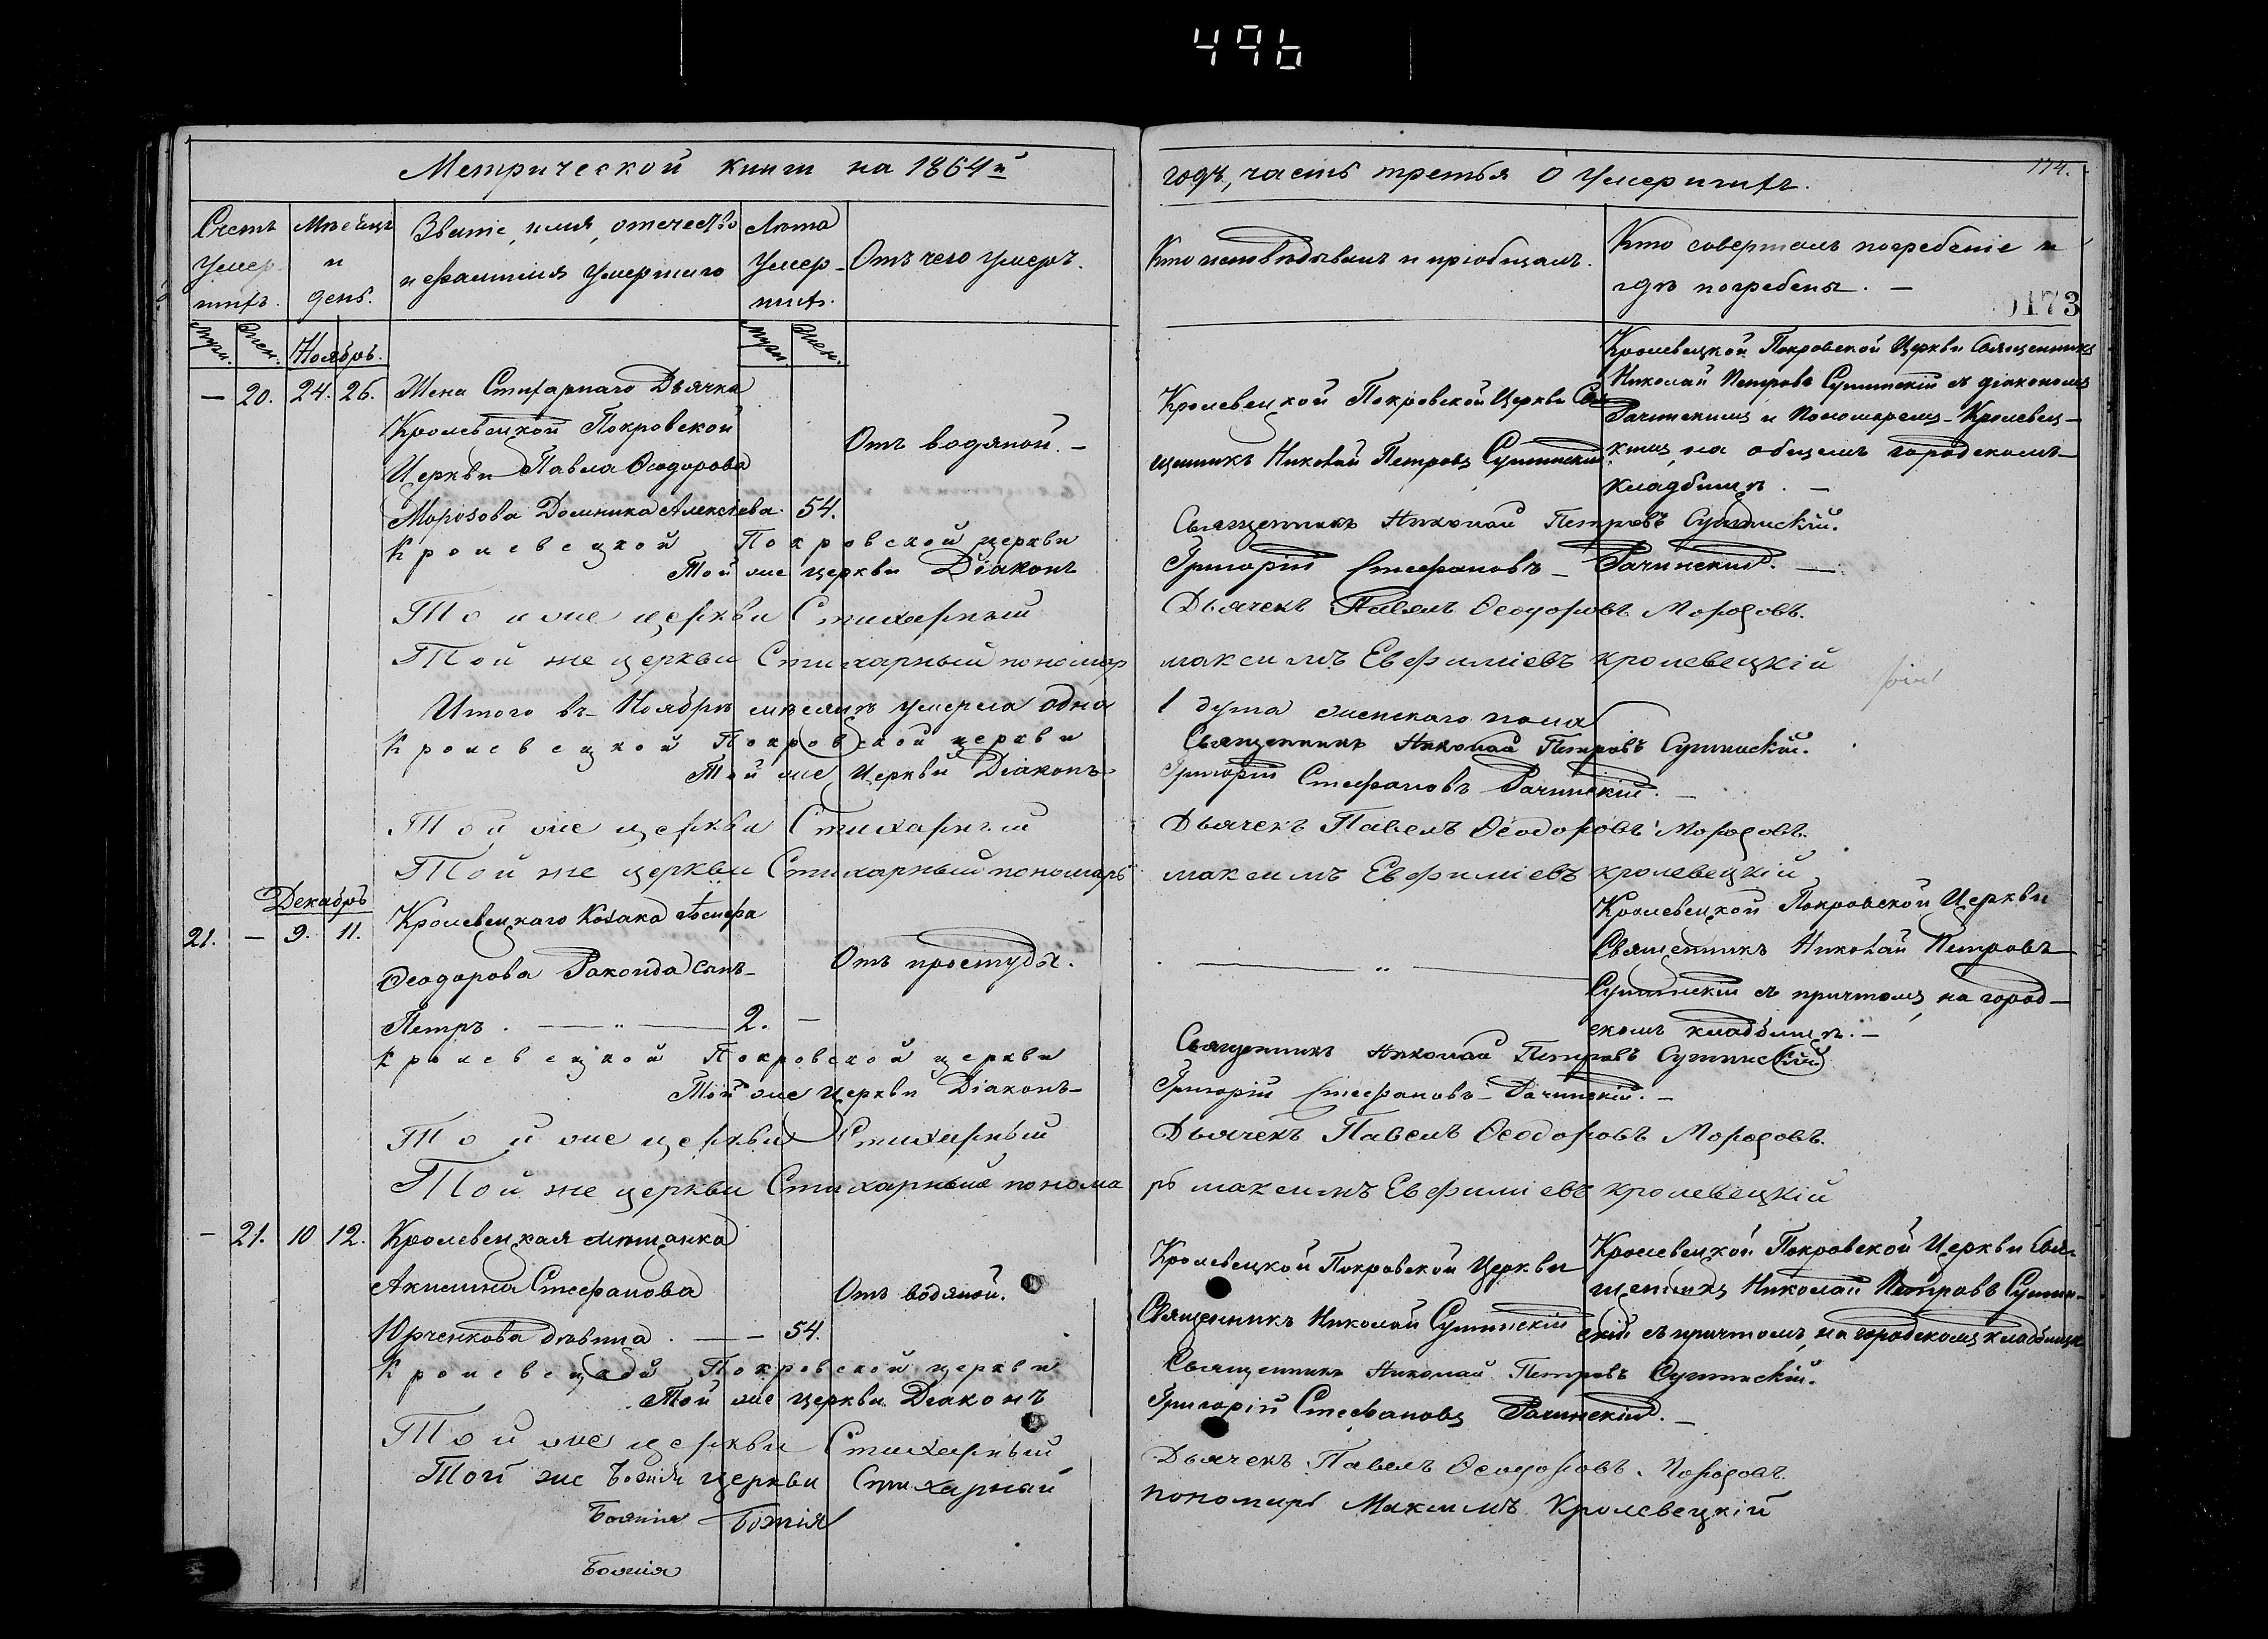 496
Метрической книги на 1864й
годъ, часть третья о умершихъ.
174.
Счетъ умер-
шихъ.
Мѣсяцъ
и
день.
Званіе, имя, отчество
и фамилія умершаго
Лѣта
умер-
шихъ.
Отъ чего умеръ.
Кто исповѣдывалъ и пріобщалъ.
Кто совершалъ погребеніе и
гдѣ погребены. —
0173
Муж. Жен.
Ноябрь.
Муж. Жен.
— 20. 24. 26.
Жена Стихарнаго Дьячка
Кролевецкой Покровской
Церкви Павла Ѳеодорова
Морозова Домника Алексіева. 54.
Отъ водяной. —
Кролевецкой Покровской Церкви Свя-
щенникъ Николай Петровъ Сушинскій
Кролевецкой Покровской Церкви Священникъ
Николай Петровъ Сушинскій съ діакономъ
Рачинскимъ и Пономаремъ Кролевец-
кимъ, на общемъ городскомъ
кладбищѣ. —
Кролевецкой Покровской церкви Священникъ Николай Петровъ Сушинскій.
Той же церкви Діаконъ Григорій Стефановъ Рачинскій. —
Той же церкви Стихарный Дьячекъ Павелъ Ѳеодоровъ Морозовъ.
Той же церкви Стихарный пономар максимъ Евфиміевъ кролевецкій
Итого въ Ноябрѣ мѣсяцѣ умерла одна 1 душа женскаго пола
Кролевецкой Покровской церкви Священникъ Николай Петровъ Сушинскій.
Той же Церкви Діаконъ Григорій Стефановъ Рачинскій. —
Той же церкви Стихарный Дьячекъ Павелъ Ѳеодоровъ Морозовъ.
Той же церкви Стихарный пономарь максимъ Евфиміевъ кролевецкій
Декабрь
21. — 9. 11.
Кролевецкаго Козака Іосифа
Ѳеодорова Ракоида сынъ
Петръ. — „ — 2. —
Отъ простуды.
— „ —
Кролевецкой Покровской Церкви
Священникъ Николай Петровъ
Сушинскій съ причтомъ, на город-
скомъ кладбищѣ. —
Кролевецкой Покровской церкви Священникъ Николай Петровъ Сушинскій
Той же Церкви Діаконъ Григорій Стефановъ Рачинскій. —
Той же церкви Стихарный Дьячекъ Павелъ Ѳеодоровъ Морозовъ.
Той же церкви Стихарный понома рь максимъ Евфиміевъ кролевецкій
— 21. 10 12.
Кролевецкая мѣщанка
Акилина Стефанова
Юрченкова дѣвица. — — 54.
Отъ водяной.
Кролевецкой Покровской Церкви
Священникъ Николай Сушинскій
Кролевецкой Покровской Церкви Свя-
щенникъ Николай Петровъ Сушин-
скій съ причтомъ, на городскомъ кладбищѣ
Кролевецкой Покровской церкви Священникъ Николай Петровъ Сушинскій.
Той же церкви Діаконъ Григорій Стефановъ Рачинскій. —
Той же церкви Стихарный Дьячекъ Павелъ Ѳеодоровъ Морозовъ.
Той же Божія церкви Стихарный пономарь Максимъ Кролевецкій
Божія Божія
Божія